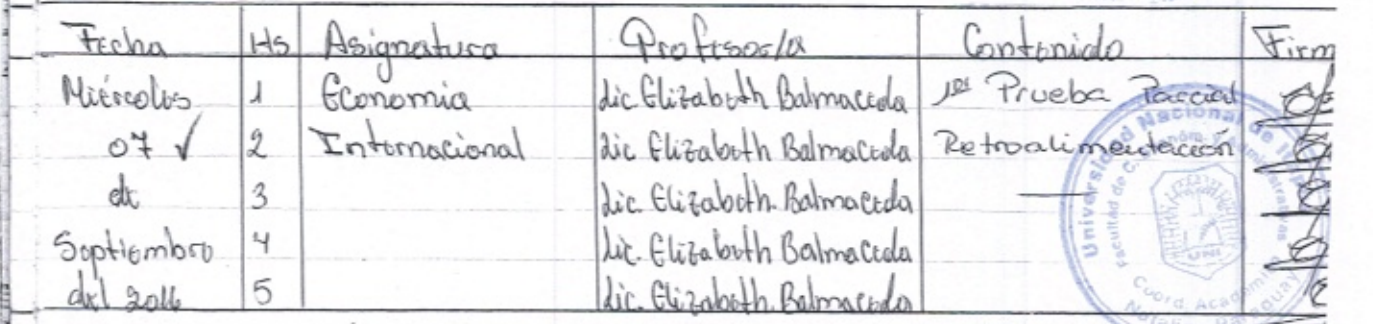 Fecha Hs Asignatura Profesor/a Contenido Firm
Miércoles 1 Economia Lic. Elizabeth Balmaceda 1era Prueba Parcial
07 ✓ 2 Internacional Lic. Elizabeth Balmaceda Retroalimentación
de 3 Lic. Elizabeth Balmaceda —
Septiembre 4 Lic. Elizabeth Balmaceda
del 2016 5 Lic. Elizabeth Balmaceda
Universidad Nacional de
Facultad de
UNI
Coord. Acad
Paraguay